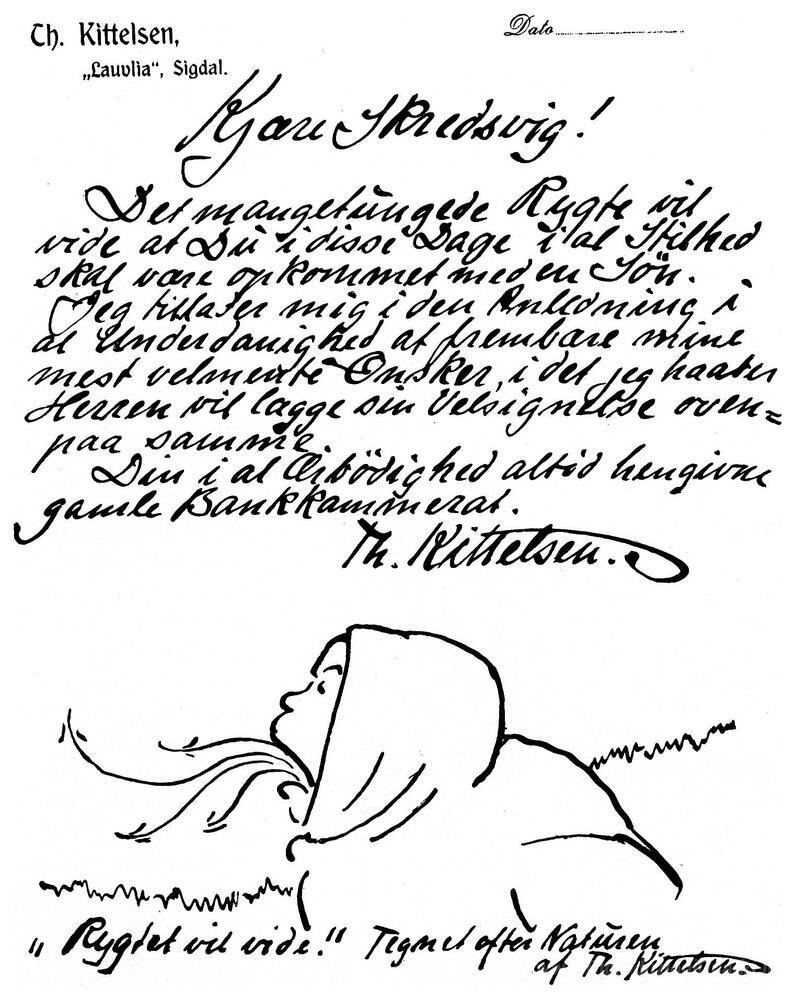 Th. Kittelsen,
„Lauvlia“, Sigdal.
Dato
Kjære Skredsvig!
Det mangetüngede Rygte vil
vide at Dü i disse Dage i al Stilhed
skal være opkommet med en Sön.
Jeg tillater mig i den Anledning i
al Underdanighed at frembære mine
mest velmente Ønsker, i det jeg haaber
Herren vil lægge sin Velsignelse oven=
paa samme.
Din i al Ærbödighed altid hengivne
gamle Bankkammerat.
Th. Kittelsen.
„Rygtet vil vide." Tegnet efter Natüren
af Th. Kittelsen.